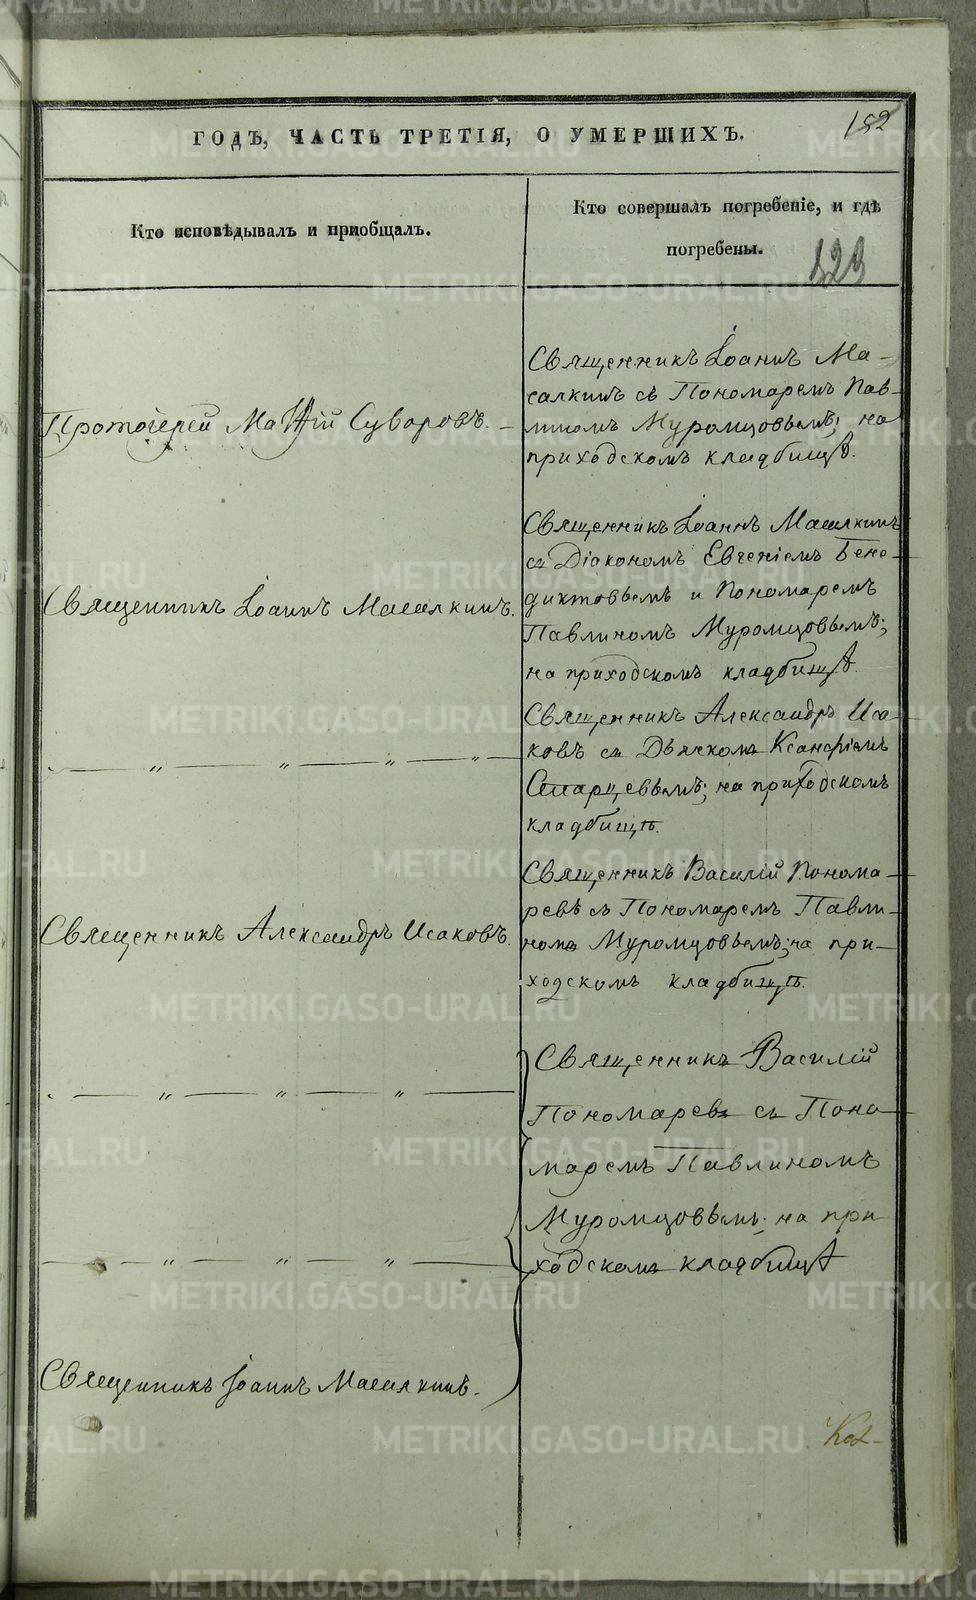 152
ГОДЪ, ЧАСТЬ ТРЕТІЯ, О УМЕРШИХЪ.
Кто исповѣдывалъ и пріобщалъ.
Кто совершалъ погребеніе, и гдѣ
погребены.
123
Протоіерей Матѳій Суворовъ. –
Священникъ Іоаннъ Ма-
салкинъ съ Пономаремъ Пав-
линомъ Муромцовымъ; на
приходскомъ кладбищѣ.
Священникъ Іоаннъ Масалкинъ.
Священникъ Іоаннъ Масалкинъ
съ Діакономъ Евгеніемъ Бене-
диктовымъ и Пономаремъ
Павлиномъ Муромцовымъ;
на приходскомъ кладбищѣ.
— „ — „ — „ — „ —
Священникъ Александръ Иса-
ковъ съ Дьячкомъ Ксанфіемъ
Старцевымъ; на приходскомъ
кладбищѣ.
Священникъ Александръ Исаковъ.
Священникъ Василій Понома-
ревъ съ Пономаремъ Павли-
номъ Муромцовымъ; на при-
ходскомъ кладбищѣ.
— „ — „ — „ —
— „ — „ — „ —
Священникъ Іоаннъ Масалкинъ.
Священникъ Василій
Пономаревъ съ Поно-
маремъ Павлиномъ
Муромцовымъ; на при-
ходскомъ кладбищѣ
METRIKI.GASO-URAL.RU